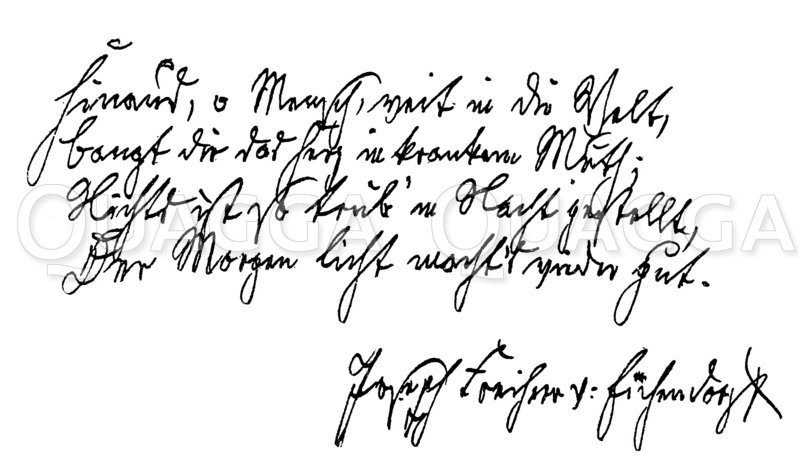 Hinaus, o Mensch, weit in die Welt,
bangt dir das Herz in krankem Muth;
Nichts ist so trüb' in Nacht gestellt,
Der Morgen licht macht's wieder gut.
Joseph Freiherr v: Eichendorff
QUAGGA QUAGGA